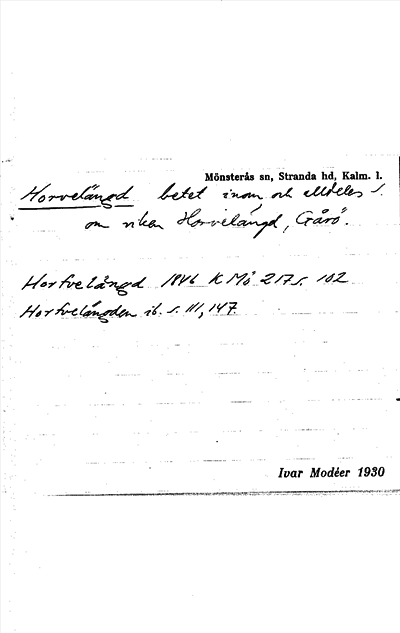 Mönsterås sn, Stranda hd, Kalm. l.
Horvelängd betet inom och alldeles s.
om viken Horvelängd, Gårö.
Horfvelångd 1846 K Mö 217 s. 102
Horfvelångden ib. s. 111, 147
Ivar Modéer 1930